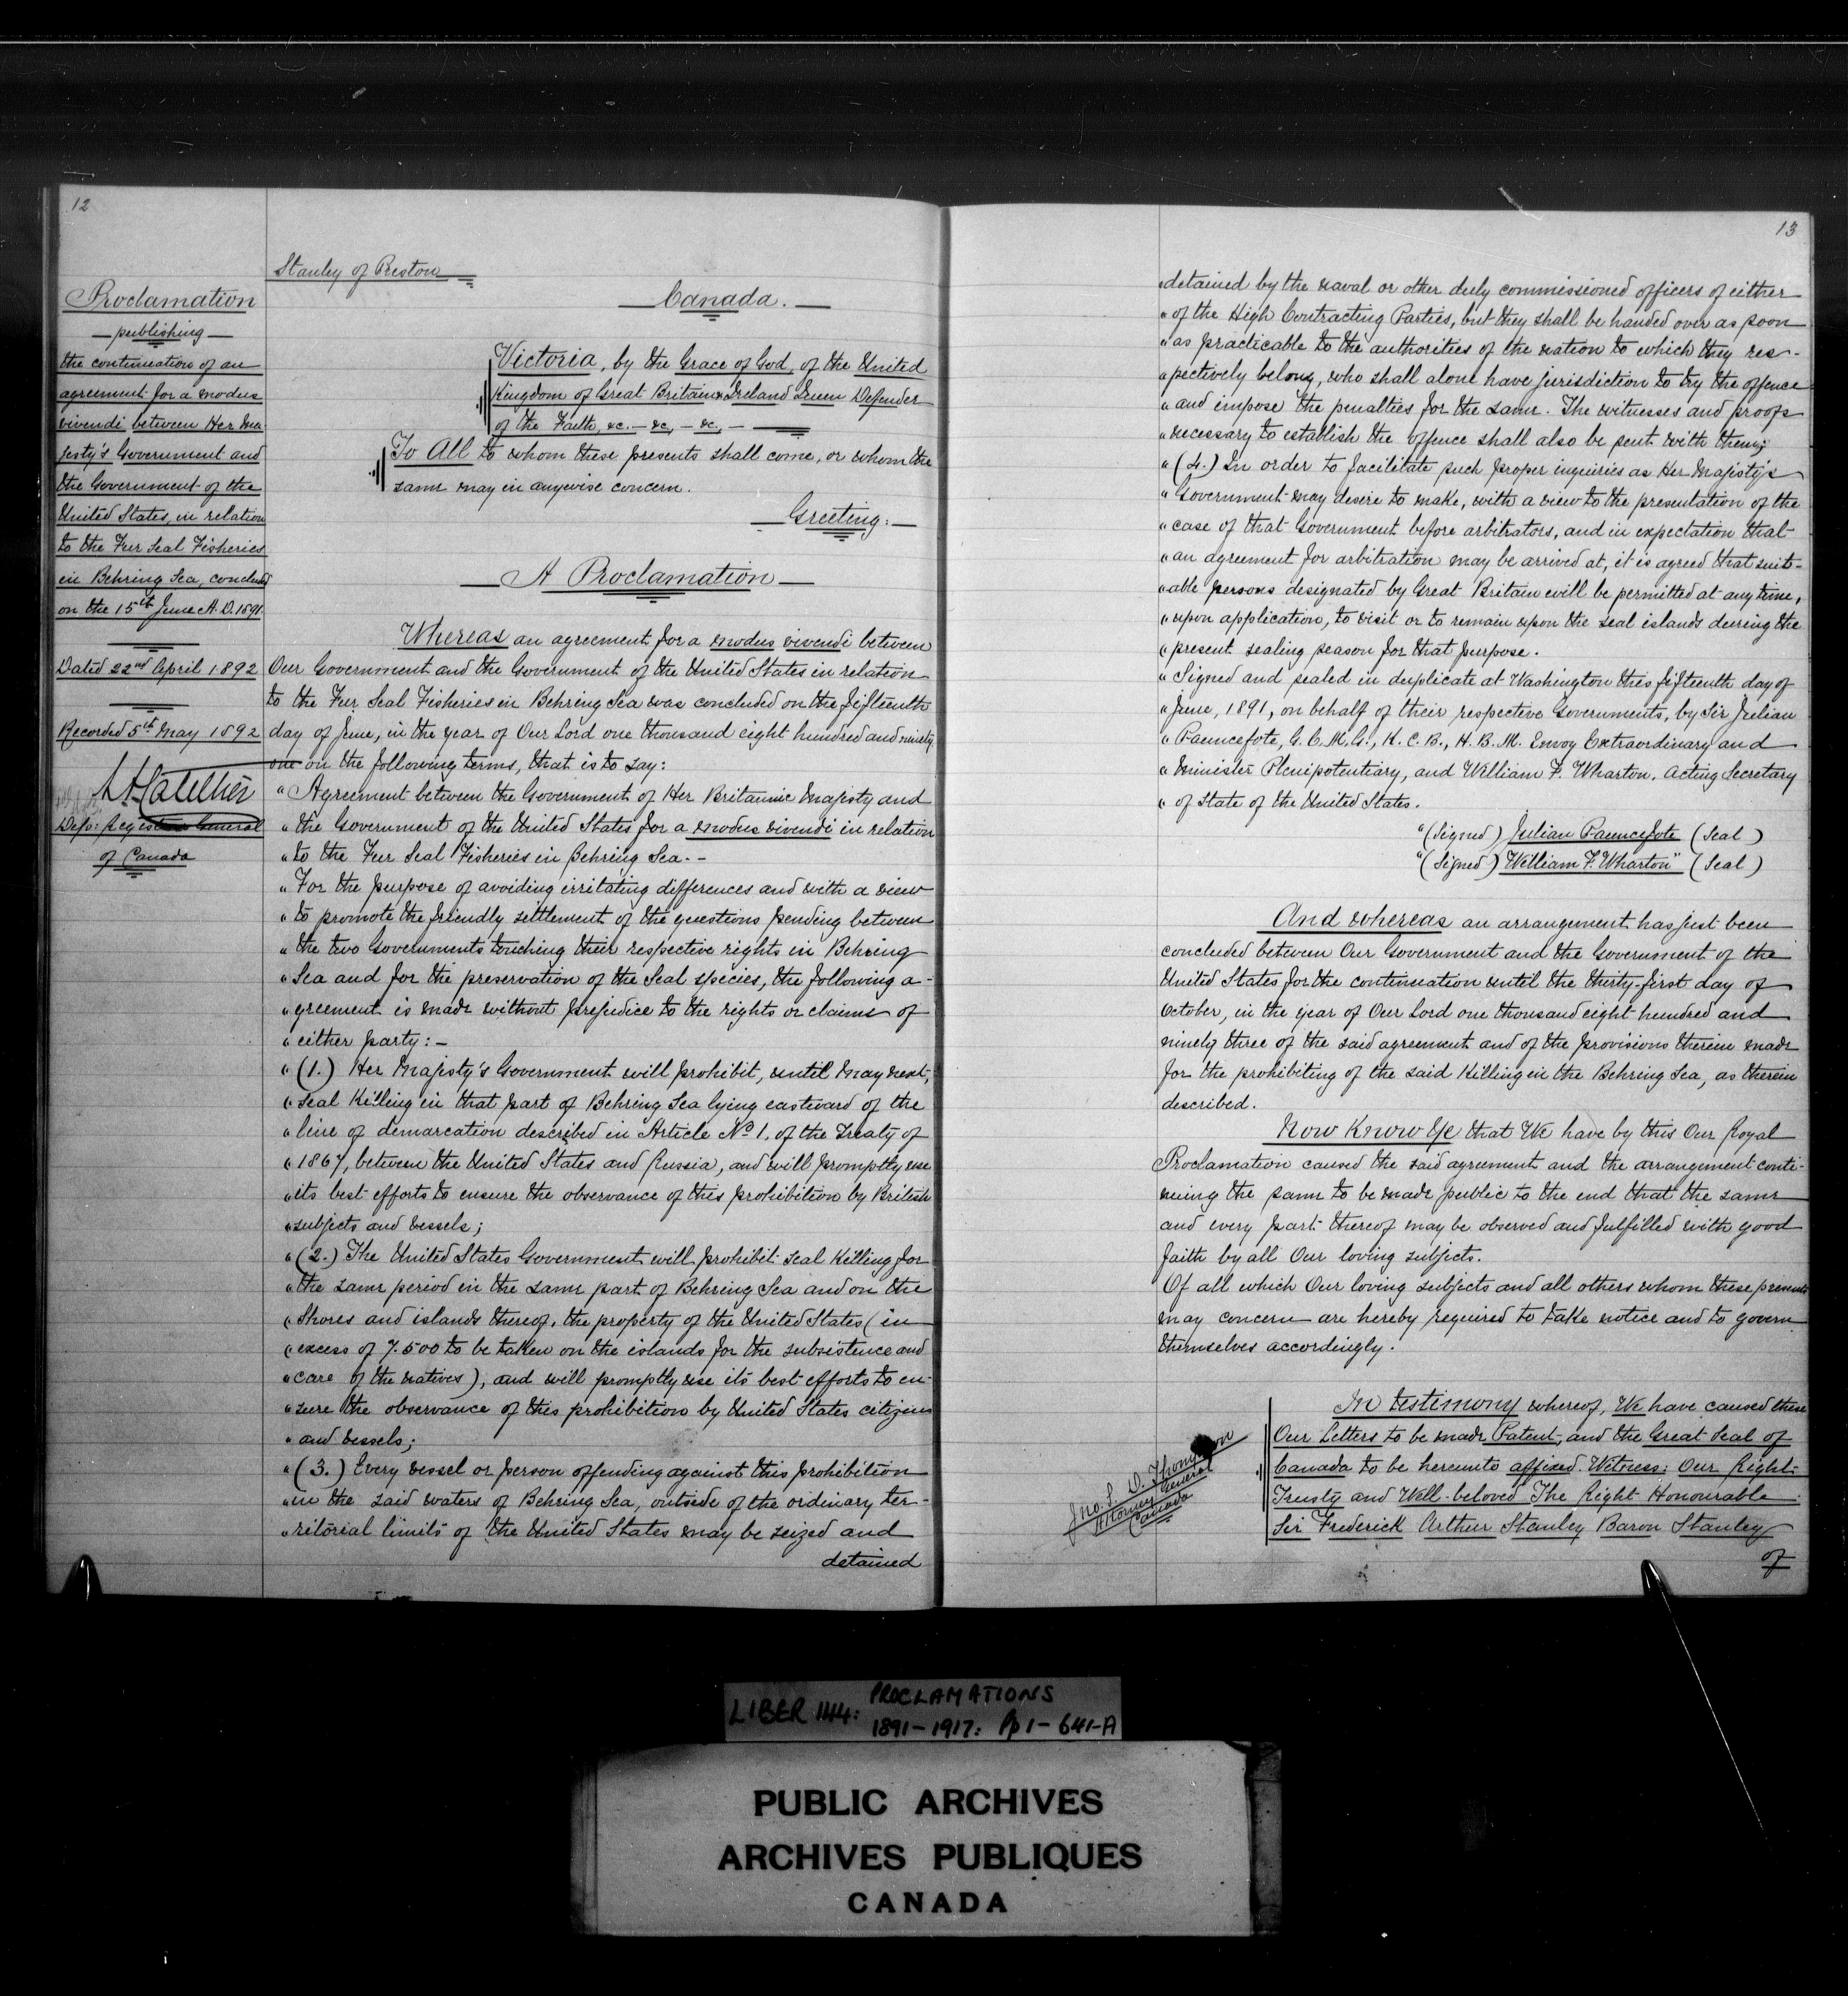 12
Proclamation
publishing
the continuation of an
agreement for a modus
vivendi between Her Ma-
jesty's Government and
the Government of the
United States, in relation
to the Fur Seal Fisheries
in Behring Sea, concluded
on the 15th June A.D. 1891.
Dated 22nd April 1892
Recorded 5th May 1892
Dep: Registrar General
of Canada
Stanley of Preston
Canada.
Victoria, by the Grace of God, of the United
Kingdom of Great Britain & Ireland Queen Defender
of the Faith, &c. - &c, - &c, -
To All to whom these presents shall come, or whom the
same may in anywise concern.
Greeting:
A Proclamation
Whereas an agreement for a modus vivendi between
Our Government and the Government of the United States in relation
to the Fur Seal Fisheries in Behring Sea was concluded on the fifteenth
day of June, in the year of Our Lord one thousand eight hundred and ninety
one on the following terms, that is to say:
" Agreement between the Government of Her Britannic Majesty and
" the Government of the United States for a modus vivendi in relation
" to the Fur Seal Fisheries in Behring Sea. -
" For the purpose of avoiding irritating differences and with a view
" to promote the friendly settlement of the questions pending between
" the two Governments touching their respective rights in Behring
" Sea and for the preservation of the Seal species, the following a-
" greement is made without prejudice to the rights or claims of
" either party: -
" (1.) Her Majesty's Government will prohibit, until May next,
" seal killing in that part of Behring Sea lying eastward of the
" line of demarcation described in Article No 1. of the Treaty of
" 1867, between the United States and Russia, and will promptly use
" its best efforts to ensure the observance of this prohibition by British
" subjects and vessels;
" (2.) The United States Government will prohibit seal killing for
" the same period in the same part of Behring Sea and on the
" Shores and islands thereof, the property of the United States (in
" excess of 7.500 to be taken on the islands for the subsistence and
" care of the natives), and will promptly use its best efforts to en-
" sure the observance of this prohibition by United States citizens
" and vessels;
" (3.) Every vessel or person offending against this prohibition
" in the said waters of Behring Sea, outside of the ordinary ter-
" ritorial limits of the United States may be seized and
detained
13
" detained by the naval or other duly commissioned officers of either
" of the High Contracting Parties, but they shall be handed over as soon
" as practicable to the authorities of the nation to which they res-
" pectively belong, who shall alone have jurisdiction to try the offence
" and impose the penalties for the same. The witnesses and proofs
" necessary to establish the offence shall also be sent with them;
" (4.) In order to facilitate such proper inquiries as Her Majesty's
" Government may desire to make, with a view to the presentation of the
" case of that Government before arbitrators, and in expectation that
" an agreement for arbitration may be arrived at, it is agreed that suit-
" able persons designated by Great Britain will be permitted at any time,
" upon application, to visit or to remain upon the seal islands during the
" present sealing season for that purpose.
" Signed and sealed in duplicate at Washington this fifteenth day of
" June, 1891, on behalf of their respective Governments, by Sir Julian
" Pauncefote, G.C.M.G., K.C.B., H.B.M. Envoy Extraordinary and
" Minister Plenipotentiary, and William F. Wharton, Acting Secretary
" of State of the United States.
"(Signed) Julian Pauncefote (Seal)
"(Signed) William F. Wharton" (Seal)
And whereas an arrangement has just been
concluded between Our Government and the Government of the
United States for the continuation until the thirty-first day of
October, in the year of Our Lord one thousand eight hundred and
ninety three of the said agreement and of the provisions therein made
for the prohibiting of the said killing in the Behring Sea, as therein
described.
Now Know Ye that We have by this Our Royal
Proclamation caused the said agreement and the arrangement conti-
nuing the same to be made public to the end that the same
and every part thereof may be observed and fulfilled with good
faith by all Our loving subjects.
Of all which Our loving subjects and all others whom these presents
may concern are hereby required to take notice and to govern
themselves accordingly.
In testimony whereof, We have caused these
Our Letters to be made Patent, and the Great Seal of
Canada to be hereunto affixed. Witness: Our Right
Trusty and Well-beloved The Right Honourable
Sir Frederick Arthur Stanley Baron Stanley
of
Jno. S. D. Thompson
Attorney General
Canada
LIBER 144: PROCLAMATIONS
1891-1917: Pp 1-641-A
PUBLIC ARCHIVES
ARCHIVES PUBLIQUES
CANADA